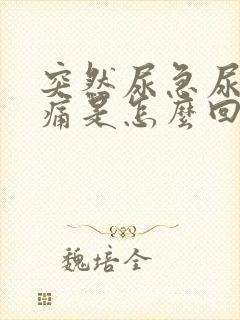 突然尿急尿
痛是怎麼回
魏培全